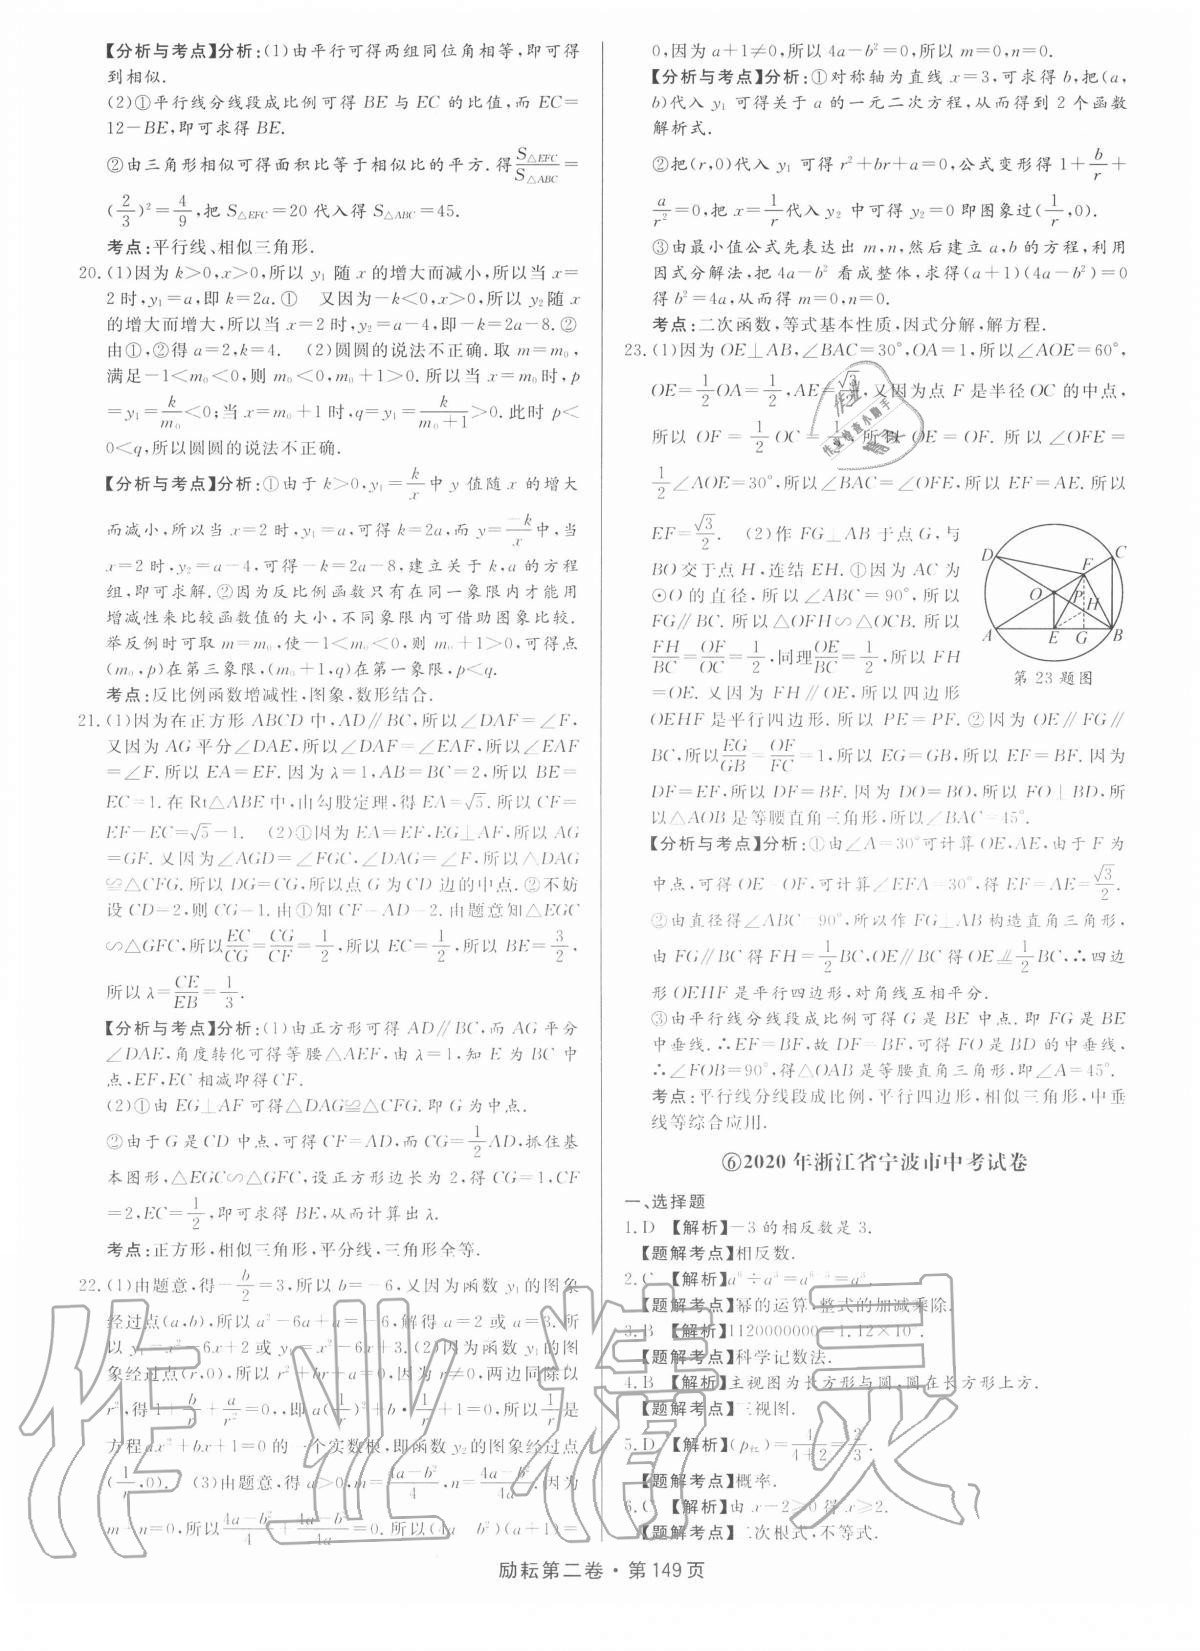 【分析与考点】分析:(1)由平行可得两组同位角相等,即可得
到相似.
(2)①平行线分线段成比例可得 BE 与 EC 的比值,而 EC=
12-BE,即可求得 BE.
②由三角形相似可得面积比等于相似比的平方.得S△EFC/S△ABC=
(2/3)²=4/9,把 S△EFC=20 代入得 S△ABC=45.
考点:平行线、相似三角形.
20. (1)因为 k>0,x>0,所以 y₁ 随 x 的增大而减小,所以当 x=
2 时,y₁=a,即 k=2a.① 又因为-k<0,x>0,所以 y₂随 x
的增大而增大,所以当 x=2 时,y₂=a-4,即-k=2a-8.②
由①,②得 a=2,k=4. (2)圆圆的说法不正确.取 m=m₀,
满足-1<m₀<0,则 m₀<0,m₀+1>0.所以当 x=m₀时,p
=y₁=k/m₀<0;当 x=m₀+1 时,q=y₁=k/(m₀+1)>0.此时 p<
0<q,所以圆圆的说法不正确.
【分析与考点】分析:①由于 k>0,y₁=k/x中 y 值随 x 的增大
而减小,所以当 x=2 时,y₁=a,可得 k=2a,而 y=-k/x中,当
x=2 时,y₂=a-4,可得-k=2a-8,建立关于 k,a 的方程
组,即可求解.②因为反比例函数只有在同一象限内才能用
增减性来比较函数值的大小,不同象限内可借助图象比较.
举反例时可取 m=m₀,使-1<m₀<0,则 m₀+1>0,可得点
(m₀,p)在第三象限,(m₀+1,q)在第一象限,p<q.
考点:反比例函数增减性,图象,数形结合.
21. (1)因为在正方形 ABCD 中,AD∥BC,所以∠DAF=∠F,
又因为 AG 平分∠DAE,所以∠DAF=∠EAF,所以∠EAF
=∠F.所以 EA=EF.因为 λ=1,AB=BC=2,所以 BE=
EC=1.在 Rt△ABE 中,由勾股定理,得 EA=√5.所以 CF=
EF-EC=√5-1. (2)①因为 EA=EF,EG⊥AF,所以 AG
=GF.又因为∠AGD=∠FGC,∠DAG=∠F,所以△DAG
≌△CFG.所以 DG=CG,所以点 G 为 CD 边的中点.②不妨
设 CD=2,则 CG=1.由①知 CF=AD=2.由题意知△EGC
∽△GFC,所以EC/CG=CG/CF=1/2,所以 EC=1/2,所以 BE=3/2,
所以 λ=CE/EB=1/3.
【分析与考点】分析:(1)由正方形可得 AD∥BC,而 AG 平分
∠DAE,角度转化可得等腰△AEF,由 λ=1,知 E 为 BC 中
点,EF,EC 相减即得 CF.
(2)①由 EG⊥AF 可得△DAG≌△CFG.即 G 为中点.
②由于 G 是 CD 中点,可得 CF=AD,而 CG=1/2AD,抓住基
本图形,△EGC∽△GFC,设正方形边长为 2,得 CG=1,CF
=2,EC=1/2,即可求得 BE,从而计算出 λ.
考点:正方形,相似三角形,平分线,三角形全等.
22. (1)由题意,得-b/2=3,所以 b=-6,又因为函数 y₁的图象
经过点(a,b),所以a²-6a+a=-6,解得 a=2 或 a=3.所
以 y₁=x²-6x+2 或 y₁=x²-6x+3.(2)因为函数 y₁的图
象经过点(r,0),所以 r²+br+a=0,因为 r≠0,两边同除以
r²,得 1+b/r+a/r²=0,即 a(1/r)²+b·1/r+1=0,所以1/r是
方程ax²+bx+1=0 的一个实数根,即函数 y₂的图象经过点
(1/r,0). (3)由题意,得 a>0,m=(4a-b²)/4,n=(4a-b²)/4a.因为
m+n=0,所以(4a-b²)/4+(4a-b²)/4a=0.所以(4a-b²)(a+1)=
0,因为 a+1≠0,所以 4a-b²=0,所以 m=0,n=0.
【分析与考点】分析:①对称轴为直线 x=3,可求得 b,把(a,
b)代入 y₁ 可得关于 a 的一元二次方程,从而得到 2 个函数
解析式.
②把(r,0)代入 y₁ 可得 r²+br+a=0,公式变形得 1+b/r+
a/r²=0,把 x=1/r代入 y₂ 中可得 y₂=0 即图象过(1/r,0).
③由最小值公式先表达出 m,n,然后建立 a,b 的方程,利用
因式分解法,把 4a-b² 看成整体,求得(a+1)(4a-b²)=0
得 b²=4a,从而得 m=0,n=0.
考点:二次函数,等式基本性质,因式分解,解方程.
23. (1)因为 OE⊥AB,∠BAC=30°,OA=1,所以∠AOE=60°,
OE=1/2OA=1/2,AE=√3/2,又因为点 F 是半径 OC 的中点,
所以 OF=1/2OC=1/2,所以 OE=OF.所以∠OFE=
1/2∠AOE=30°,所以∠BAC=∠OFE,所以 EF=AE.所以
EF=√3/2. (2)作 FG⊥AB 于点 G,与
BO交于点 H,连结 EH.①因为 AC 为
⊙O 的直径,所以∠ABC=90°,所以
FG∥BC.所以△OFH∽△OCB.所以
FH/BC=OF/OC=1/2,同理OE/BC=1/2,所以 FH
=OE.又因为 FH∥OE,所以四边形
OEHF 是平行四边形.所以 PE=PF.②因为 OE∥FG∥
BC,所以EG/GB=OF/FC=1,所以 EG=GB,所以 EF=BF.因为
DF=EF,所以 DF=BF.因为 DO=BO,所以 FO⊥BD,所
以△AOB 是等腰直角三角形,所以∠BAC=45°.
D C F O P H A E G B
第 23 题图
【分析与考点】分析:①由∠A=30°可计算 OE,AE,由于 F 为
中点,可得 OE=OF,可计算∠EFA=30°,得 EF=AE=√3/2.
②由直径得∠ABC=90°,所以作 FG⊥AB 构造直角三角形,
由 FG∥BC 得 FH=1/2BC,OE∥BC 得 OE⫽1/2BC,∴四边
形 OEHF 是平行四边形,对角线互相平分.
③由平行线分线段成比例可得 G 是 BE 中点.即 FG 是 BE
中垂线.∴EF=BF,故 DF=BF,可得 FO 是 BD 的中垂线,
∴∠FOB=90°,得△OAB 是等腰直角三角形,即∠A=45°.
考点:平行线分线段成比例,平行四边形,相似三角形,中垂
线等综合应用.
⑥2020 年浙江省宁波市中考试卷
一、选择题
1. D 【解析】-3 的相反数是 3.
【题解考点】相反数.
2. C 【解析】a⁶÷a³=a⁶⁻³=a³.
【题解考点】幂的运算,整式的加减乘除.
3. B 【解析】1120000000=1.12×10⁹.
【题解考点】科学记数法.
4. B 【解析】主视图为长方形与圆,圆在长方形上方.
【题解考点】三视图.
5. D 【解析】(p红)=4/(4+2)=2/3.
【题解考点】概率.
6. C 【解析】由 x-2≥0 得 x≥2.
【题解考点】二次根式,不等式.
励耘第二卷·第 149 页
作业精灵
作业
作业检查小助手